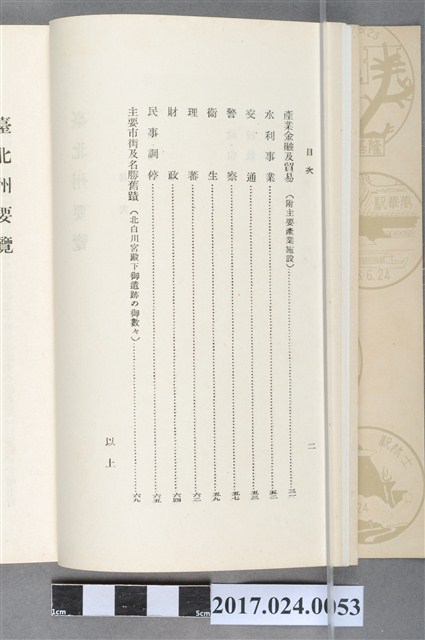 目次
二
產業金融及貿易（附主要產業施設）…………三一
水利事業…………五二
交通…………五三
警察…………五七
衞生…………五九
理蕃…………六二
財政…………六四
民事調停…………六五
主要市街及名勝舊蹟（北白川宮殿下御遺跡の御數々）…………六九
以上
臺北州要覽
1cm
5cm
2017.024.0053